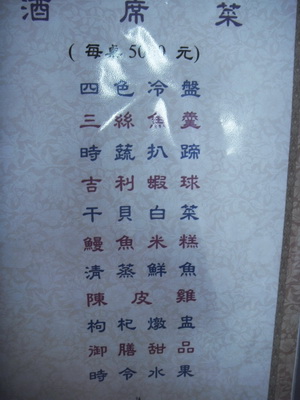 酒席菜
(每桌5000元)
四色冷盤
三絲焦羹
時蔬扒蹄
吉利蝦球
干貝白菜
鰻魚米糕
清蒸鮮魚
陳皮雞
枸杞燉盅
御膳甜品
時令水果